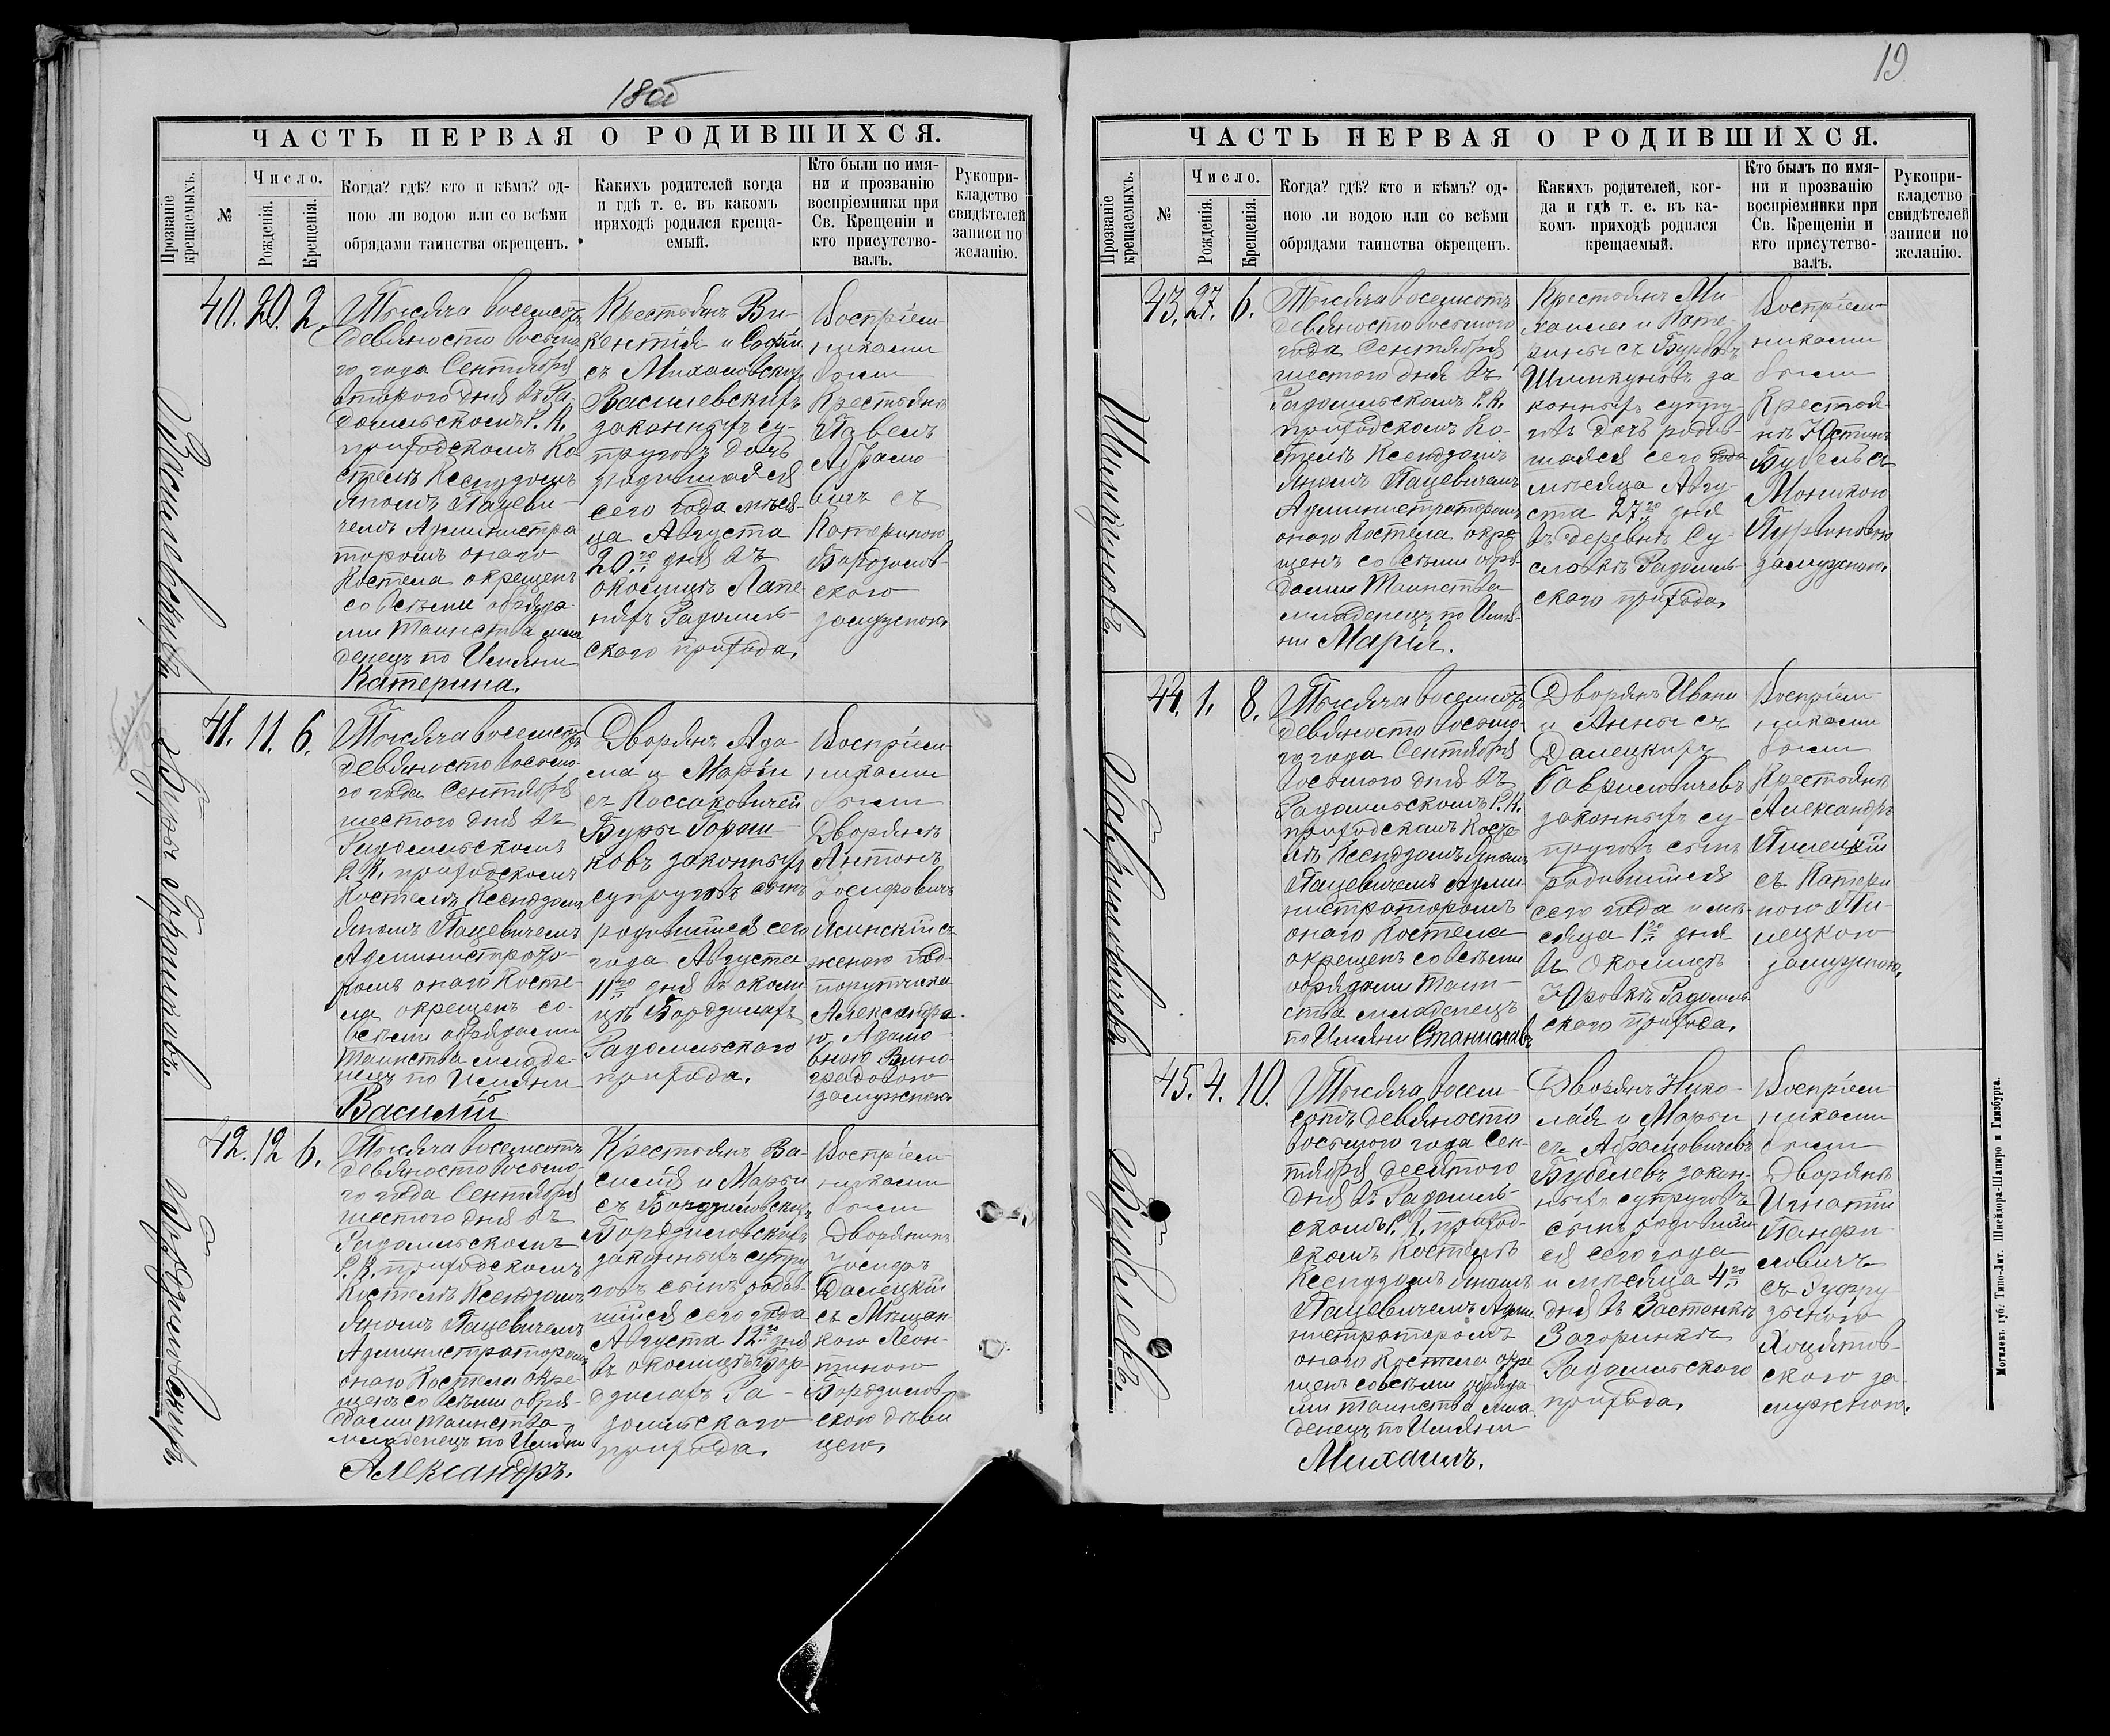 180б
ЧАСТЬ ПЕРВАЯ О РОДИВШИХСЯ.
Прозваніе крещаемыхъ.
№
Число.
Рожденія.
Крещенія.
Когда? гдѣ? кто и кѣмъ? од-
ною ли водою или со всѣми
обрядами таинства окрещенъ.
Какихъ родителей когда
и гдѣ т. е. въ какомъ
приходѣ родился креща-
емый.
Кто были по имя-
ни и прозванію
воспріемники при
Св. Крещеніи и
кто присутство-
валъ.
Рукопри-
кладство
свидѣтелей
записи по
желанію.
Василевскихъ
40. 20. 2.
Тысяча восемсотъ
девяносто восьма-
го года Сентября
второго дня въ Ра-
домльскомъ Р. К.
приходскомъ Ко-
стелѣ Ксендзомъ
Яномъ Пацеви-
чемъ Администра
торомъ онаго
Костела окрещенъ
со всѣми обряда-
ми Таинства мла
денецъ по Имяни
Катерина.
Крестьянъ Ви-
кентія и Софіи
съ Михаловскихъ
Василевскихъ
законныхъ су-
пруговъ дочь
родившаяся
сего года мѣся-
ца Августа
20го дня въ
околицѣ Лапе-
няхъ Радомль-
скаго прихода.
Воспріем-
никами
были
Крестьянѣ
Павелъ
Абрамо
вичъ съ
Катериною
Бордзилов-
скою
замужною.
Буря Горошковъ.
41. 11. 6.
Тысяча восемсотъ
девяносто восьмо-
го года Сентября
шестого дня въ
Радомльскомъ
Р. К. приходскомъ
Костелѣ Ксендзомъ
Яномъ Пацевичемъ
Администрато-
ромъ онаго Косте-
ла окрещенъ со-
всѣми обрядами
Таинства младе-
нецъ по Имяни
Василій
Дворянъ Ада
ма и Маріи
съ Коссаковичей
Буры Горош-
ковъ законныхъ
супруговъ сынъ
родившійся сего
года Августа
11го дня въ околи
цѣ Бордзилахъ
Радомльского
прихода.
Воспріем-
никами
были
Дворянѣ
Антонъ
Іосифовичъ
Ясинскій съ
женою Под-
поручика
Александра-
ю Адамо-
вною
замужною.
Бордзиловскихъ.
42. 12 6.
Тысяча восемсотъ
девяносто восьмо-
го года Сентября
шестого дня въ
Радомльскомъ
Р. К. приходскомъ
Костелѣ Ксендзомъ
Яномъ Пацевичемъ
Администраторомъ
онаго Костела окре-
щенъ со всѣми обря-
дами Таинства
младенецъ по Имяни
Александръ.
Крестьянъ Ва-
силія и Марьи
съ Бордзиловскихъ
Бордзиловскихъ
законныхъ супру
говъ сынъ родив-
шійся сего года
Августа 12го дня
въ околицѣ Бор-
дзилахъ Ра-
домльскаго
прихода.
Воспріем-
никами
были
Дворянинъ
Іосифъ
Далецкій
съ Мѣщан-
кою Леон-
тиною
Бордзилов-
скою дѣви
цею.
19
ЧАСТЬ ПЕРВАЯ О РОДИВШИХСЯ.
Прозваніе крещаемыхъ.
№
Число.
Рожденія.
Крещенія.
Когда? гдѣ? кто и кѣмъ? од-
ною ли водою или со всѣми
обрядами таинства окрещенъ.
Какихъ родителей, ког-
да и гдѣ т. е. въ ка-
комъ приходѣ родился
крещаемый.
Кто былъ по имя-
ни и прозванію
воспріемники при
Св. Крещеніи и
кто присутство-
валъ.
Рукопри-
кладство
свидѣтелей
записи по
желанію.
Шимкуновъ.
43. 27. 6.
Тысяча восемсотъ
девяносто восьмого
года Сентября
шестого дня въ
Радомльскомъ Р. К.
приходскомъ Ко-
стелѣ Ксендзомъ
Яномъ Пацевичемъ
Администраторомъ
онаго Костела окре-
щенъ со всѣми обря-
дами Таинства
младенецъ по Имя-
ни Марія.
Крестьянъ Ми-
хаила и Кате-
рины съ
Шимкуновъ за
конныхъ супру-
говъ дочь родив-
шаяся сего года
мѣсяца Авгу-
ста 27го дня
въ деревнѣ Су-
слокѣ Радомль-
скаго прихода.
Воспріем-
никами
были
Крестья-
нѣ Юстинъ
Бубель съ
Моникою
замужною.
Гавриловичевъ
44. 1. 8.
Тысяча восемсотъ
девяносто восьмо-
го года Сентября
восьмого дня въ
Радомльскомъ Р. К.
приходскомъ Косте-
лѣ Ксендзомъ Яномъ
Пацевичемъ Адми-
нистраторомъ
онаго Костела
окрещенъ со всѣми
обрядами Таин-
ства младенецъ
по Имяни Станиславъ
Дворянъ Ивана
и Анны съ
Далецкихъ
Гавриловичевъ
законныхъ су-
пруговъ сынъ
родившійся
сего года и мѣ-
сяца 1го дня
въ Околицѣ
Юровкѣ Радомль
скаго прихода.
Воспріем-
никами
были
Крестьянѣ
Александръ
Пилецкій
съ Катери
ною Пи-
лецкою
замужною.
Бубелевъ.
45. 4. 10.
Тысяча восем-
сотъ девяносто
восьмого года Сен-
тября десятого
дня въ Радомль-
скомъ Р. К. приход-
скомъ Костелѣ
Ксендзомъ Яномъ
Пацевичемъ Адми-
нистраторомъ
онаго Костела окре
щенъ со всѣми обряда-
ми Таинства мла-
денецъ по Имяни
Михаилъ.
Дворянъ Нико-
лая и Марьи
съ Абрамовичевъ
Бубелевъ закон-
ныхъ супруговъ
сынъ родивший-
ся сего года
и мѣсяца 4го
дня въ Застенкѣ
Загоринкѣ
Радомльскаго
прихода.
Воспріем-
никами
были
Дворянѣ
Игнатій
Панфи-
ловичъ
съ
скою за-
мужною.
Могилевъ губ. Типо-Лит. Шнейдора-Шапиро и Гинзбурга.